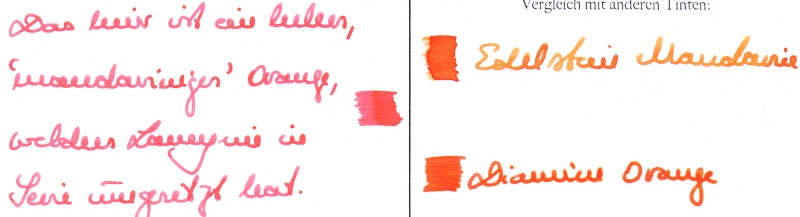 Das hier ist ein helles,
'mandariniges' Orange,
welches Lamy nie in
Serie umgesetzt hat.
Vergleich mit anderen Tinten:
Edelstein Mandarin
Diamine Orange